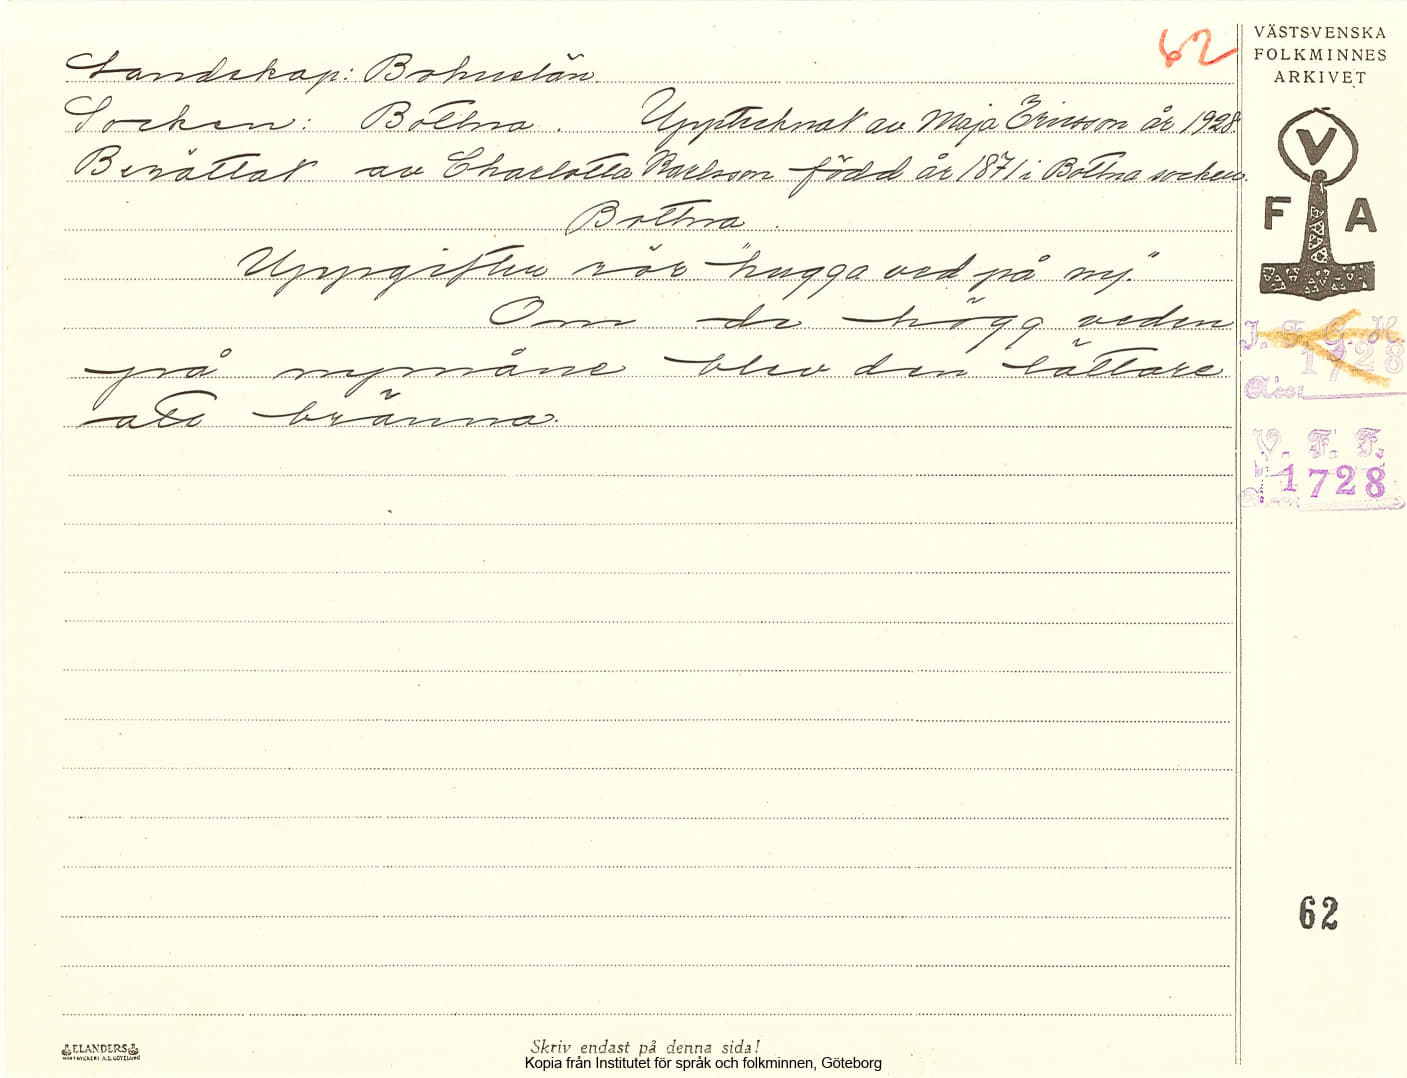 62
VÄSTSVENSKA
FOLKMINNES
ARKIVET
Landskap: Bohuslän.
Socken: Bottna. Upptecknat av Maja Ericsson år 1928.
Berättat av Charlotta Karlsson född år 1871 i Bottna socken.
Bottna.
Uppgiften rör "hugga ved på ny".
Om de högg veden
på nymåne blev den lättare
att bränna.
V
F A
I. F. G. H.
1728
Acc:
V. F. F.
1728
62
ELANDERS
Skriv endast på denna sida!
Kopia från Institutet för språk och folkminnen, Göteborg